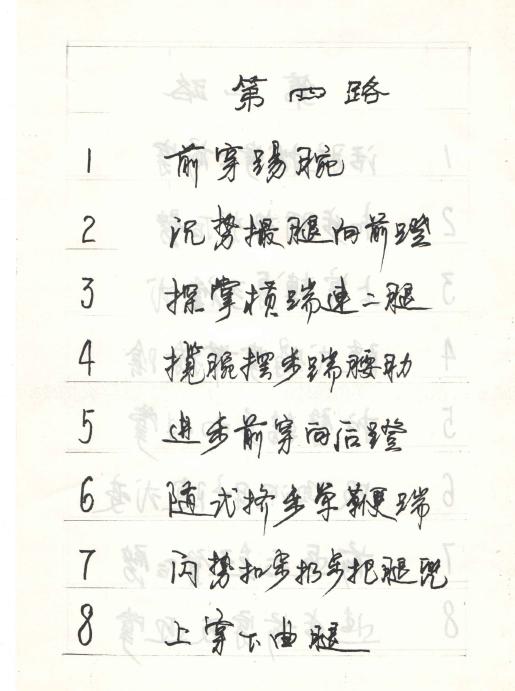 第四路
1 前穿踢腕
2 沉势撮腿向前蹬
3 探掌横踹连二腿
4 揽腕摆步踹腰肋
5 进步前穿向后蹬
6 随式挤步单鞭踹
7 闪势扣步扔步把腿兜
8 上穿下曲腿